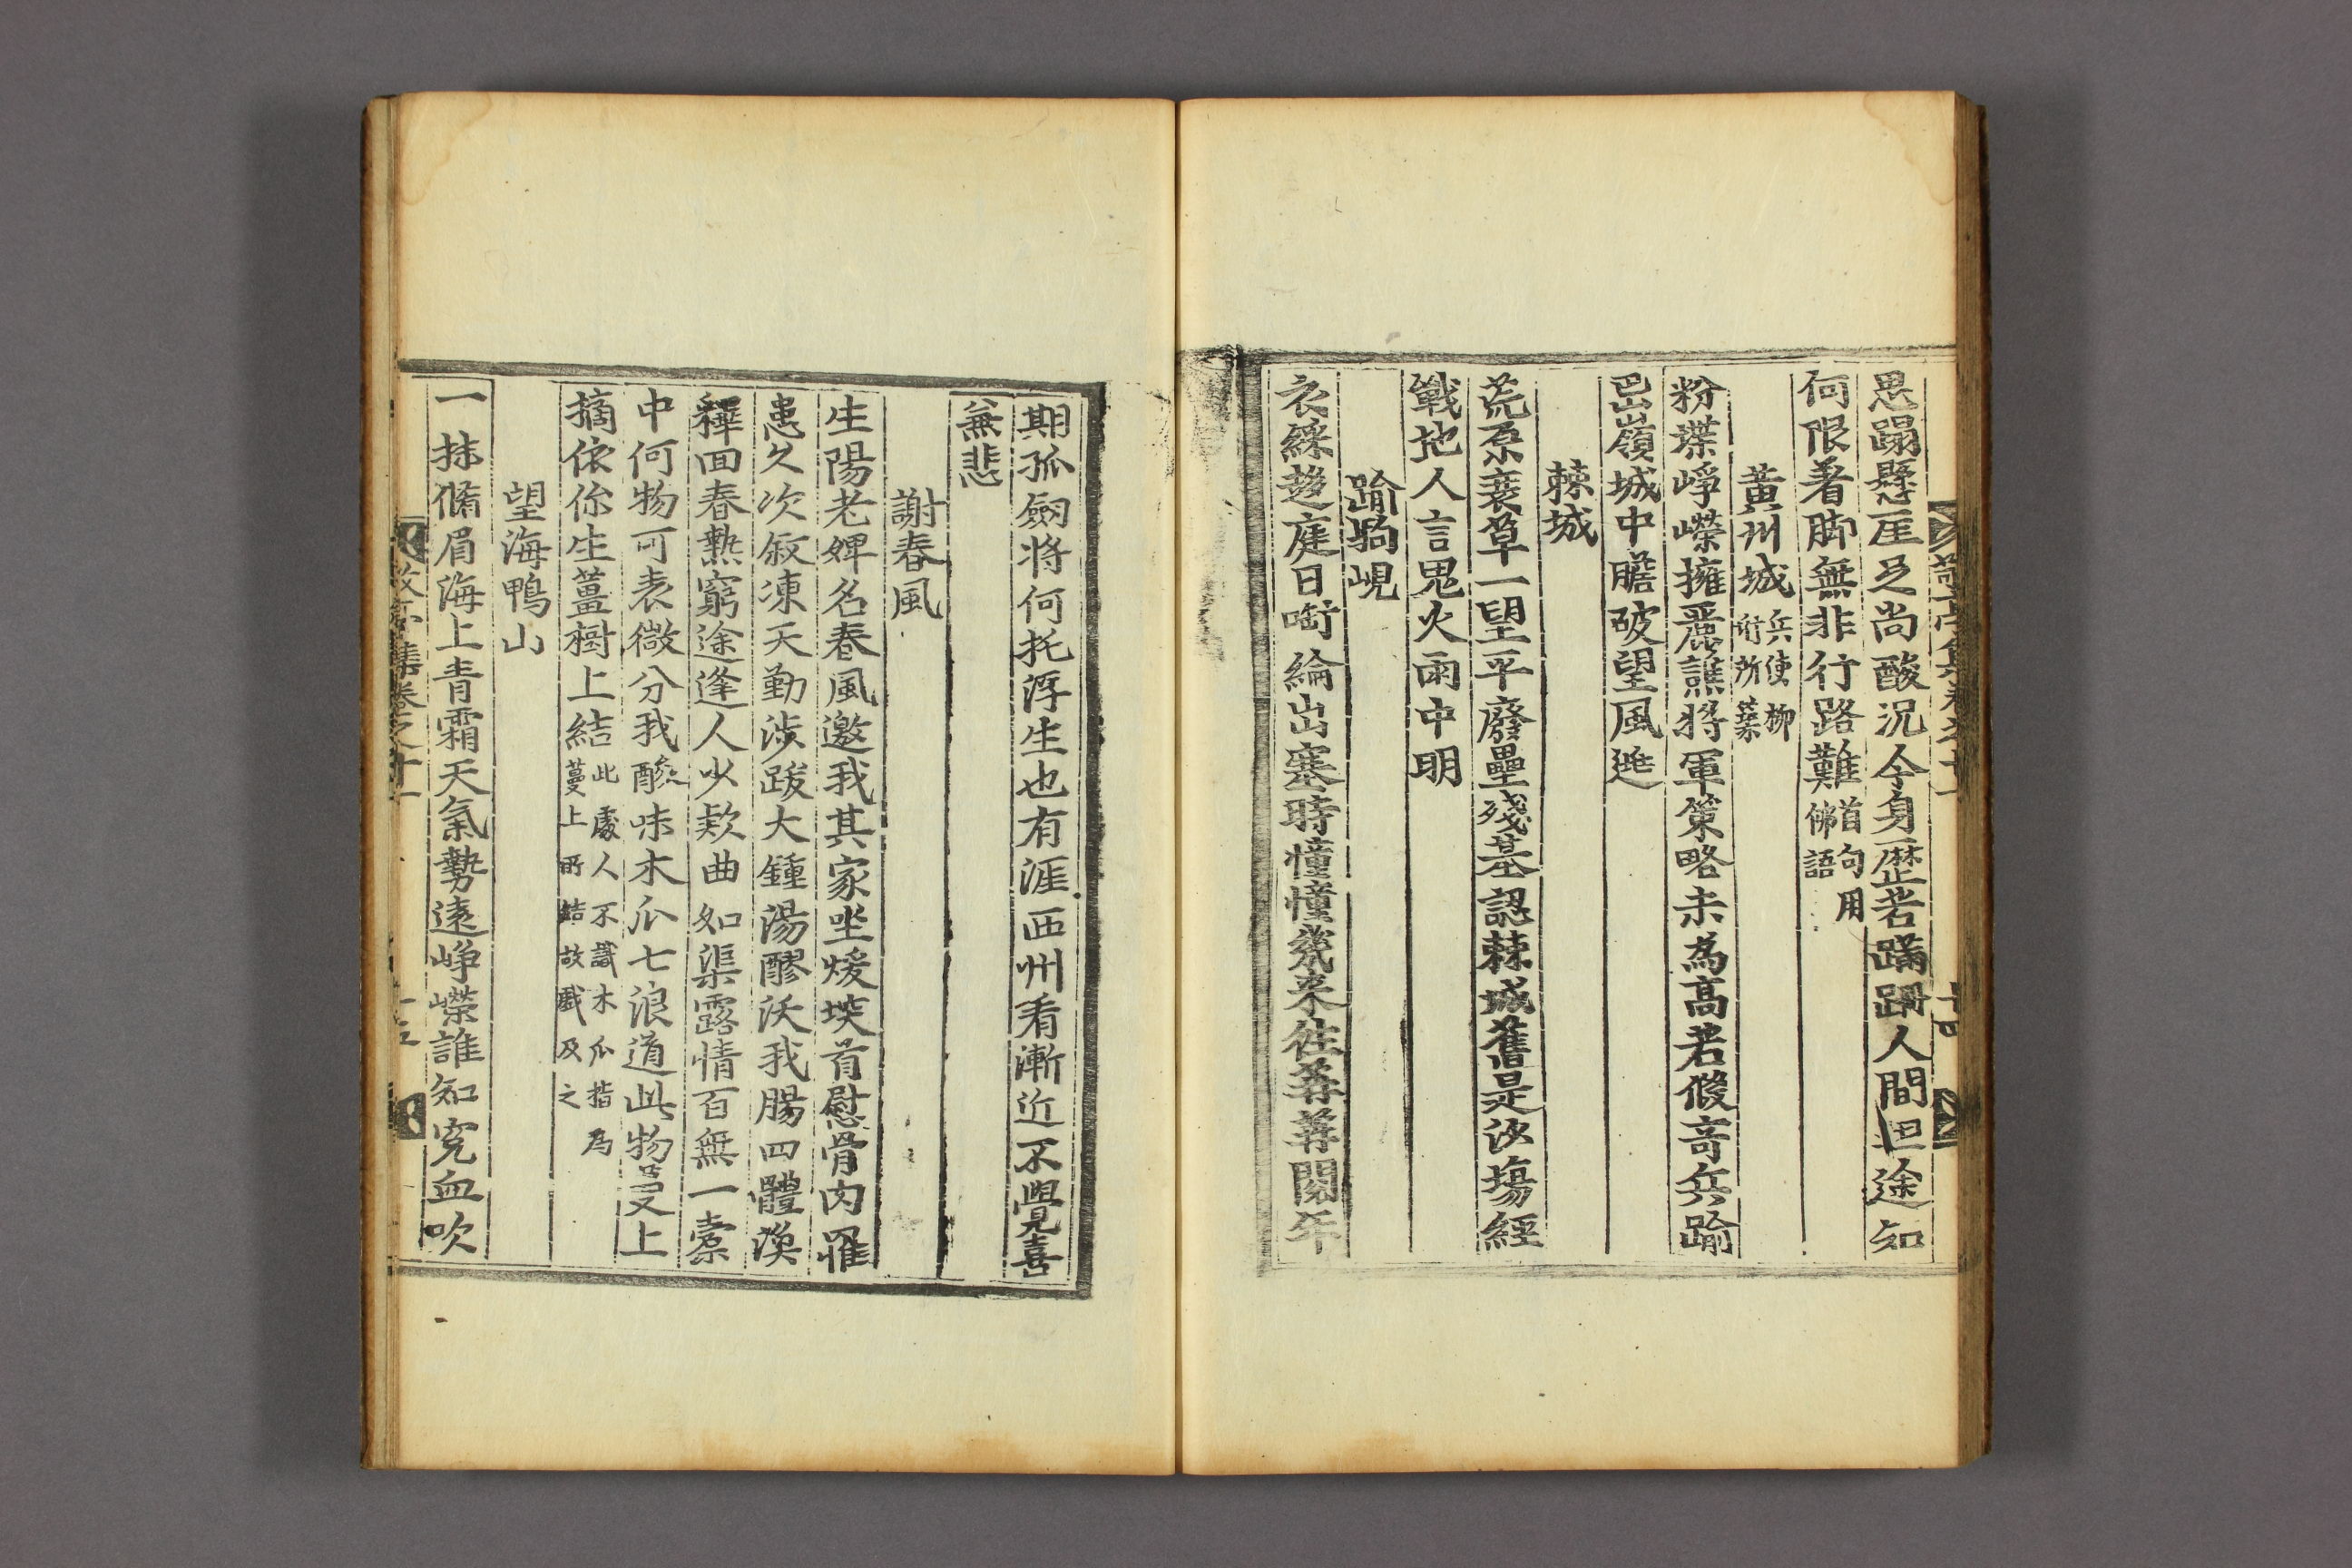 思蹋懸厓足尚酸況今身歷若蹣跚人間坦途知
何限着脚無非行路難首句用佛語
黃州城兵使柳珩所築
粉堞崢嶸擁麗譙將軍策略未為高若俊奇兵踰
嵒嶺城中膽破望風逃
棘城
荒原衰草一望平廢壘殘基認棘城舊是沙場經
戰地人言鬼火雨中明
踰駒峴
衣綵趍庭日啣綸出塞時憧憧幾來往荐荐閱年
期孤劒將何托浮生也有涯西州看漸近不覺喜
兼悲
謝春風
生陽老婢名春風邀我其家坐煖堗首慰骨肉罹
恚久次敘凍天勤涉跋大鍾湯醪沃我腸四體渙
釋回春熱窮途逢人少欵曲如渠露情百無一橐
中何物可表微分我酸味木瓜七浪道此物蔓上
摘依你生薑樹上結此處人不識木瓜指為蔓上所結故戲及之
望海鴨山
一抹脩眉海上青霜天氣勢遠崢嶸誰知寃血吹
敬亭集卷之十一
十五